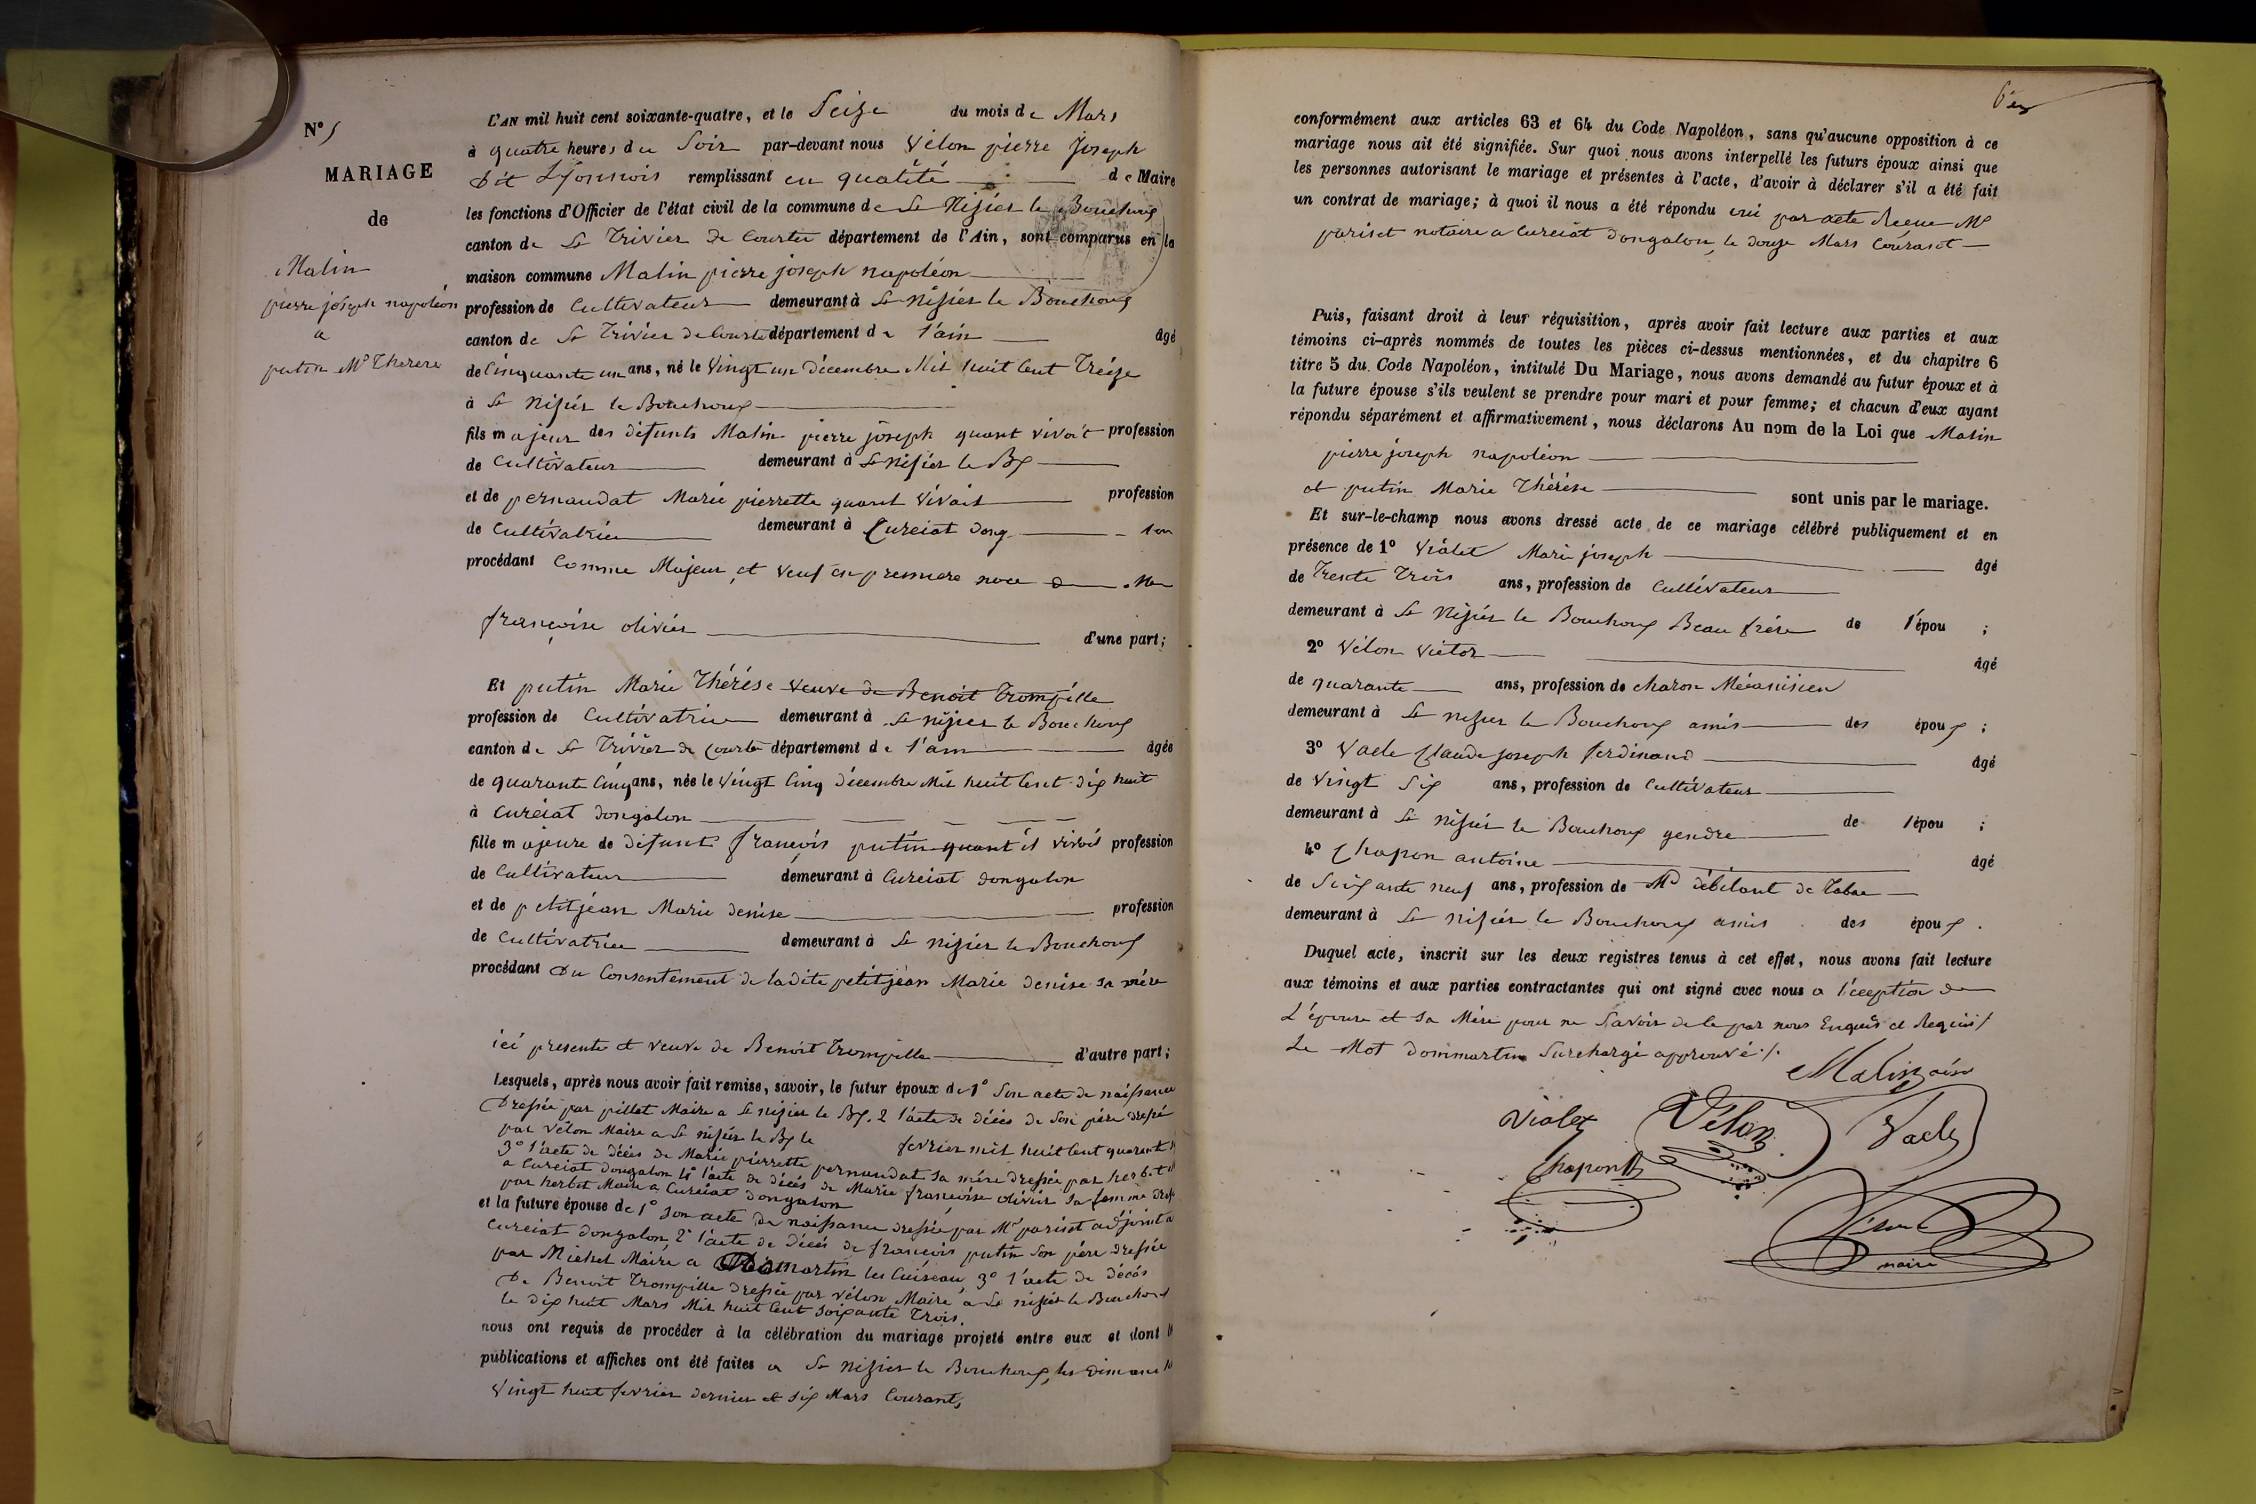 N° 5
MARIAGE
de
Malin
pierre joseph napoléon
a
putin Mie Therese
L'AN mil huit cent soixante-quatre, et le Seize du mois de Mars
à quatre heures du Soir par-devant nous Vélon pierre Joseph
dit Lyonnois remplissant en qualité de Maire
les fonctions d'Officier de l'état civil de la commune de St Nizier le Bouchoux
canton de St Trivier de Courtes département de l'Ain, sont comparus en la
maison commune Malin pierre joseph napoléon
profession de Cultivateur demeurant à St nizier le Bouchoux
canton de St Trivier de Courtes département de l'ain âgé
de Cinquante un ans, né le Vingt un décembre Mil huit Cent Treize
à St Nizier le Bouchoux
fils majeur des défunts Malin pierre joseph quant vivoit profession
de Cultivateur demeurant à St nizier le Bx
et de pernaudat Marie pierrette quant vivait profession
de Cultivatrice demeurant à Curciat dong lon
procédant Comme Majeur et Veuf en premiere noce de
françoise olivier d'une part;
Et putin Marie Thérése veuve de Benoit Trompille
profession de Cultivatrice demeurant à St nizier le Bouchoux
canton de St Trivier de Courtes département de l'ain âgée
de quarante Cinq ans, née le Vingt Cinq décembre Mil huit Cent dix huit
à Curciat dongalon
fille majeure de défunt françois putin quant il vivois profession
de Cultivateur demeurant à Curciat dongalon
et de petitjean Marie denise profession
de Cultivatrice demeurant à St nizier le Bouchoux
procédant du Consentement de ladite petitjean Marie denise sa mère
ici presente et veuve de Benoit Trompille d'autre part;
Lesquels, après nous avoir fait remise, savoir, le futur époux de 1° Son acte de naissance
Dressée par pillet Maire a St nizier le Bx. 2 l'acte de décés de Son père dressé
par Vélon Maire a St nizier le Bx le fevrier mil huit Cent quarante
3° l'acte de décés de Marie pierrette pernaudat sa mére dressée par herbet
a Curciat dongalon 4° l'acte de décés de Marie françoise olivier sa femme
par herbet Maire a Curciat dongalon
et la future épouse de 1° son acte de naissance dressée par Mr pariset adjoint a
Curciat dongalon 2° l'acte de décés de françois putin son pére dressée
par Michel Maire a Dommartin les Cuiseau, 3° l'acte de décés
De Benoit Trompille dressée par Vélon Maire a St nizier le Bouchoux
le dix huit Mars Mil huit Cent Soixante Trois.
nous ont requis de procéder à la célébration du mariage projeté entre eux et dont
publications et affiches ont été faites a St Nizier le Bouchoux, les dimanc
Vingt huit fevrier dernier et six Mars Courant,
conformément aux articles 63 et 64 du Code Napoléon, sans qu'aucune opposition à ce
mariage nous ait été signifiée. Sur quoi nous avons interpellé les futurs époux ainsi que
les personnes autorisant le mariage et présentes à l'acte, d'avoir à déclarer s'il a été fait
un contrat de mariage; à quoi il nous a été répondu oui par acte Recue Me
pariset notaire a Curciat dongalon, le douze Mars Courant
Puis, faisant droit à leur réquisition, après avoir fait lecture aux parties et aux
témoins ci-après nommés de toutes les pièces ci-dessus mentionnées, et du chapitre 6
titre 5 du Code Napoléon, intitulé Du Mariage, nous avons demandé au futur époux et à
la future épouse s'ils veulent se prendre pour mari et pour femme; et chacun d'eux ayant
répondu séparément et affirmativement, nous déclarons Au nom de la Loi que Malin
pierre joseph napoléon
et putin Marie Thérése sont unis par le mariage.
Et sur-le-champ nous avons dressé acte de ce mariage célébré publiquement et en
présence de 1° Violet Marie joseph âgé
de Trente Trois ans, profession de Cultivateur
demeurant à St Nizier le Bouchoux Beau frére de l'épou ;
2° Vélon Victor âgé
de quarante ans, profession de charon Mécanicien
demeurant à St nizier le Bouchoux amis des époux ;
3° Vaele Claude joseph ferdinand âgé
de Vingt Six ans, profession de Cultivateur
demeurant à St Nizier le Bouchoux gendre de l'épou ;
4° Chapon antoine âgé
de Soixante neuf ans, profession de Md débitant de Tabac
demeurant à St nizier le Bouchoux amis des époux .
Duquel acte, inscrit sur les deux registres tenus à cet effet, nous avons fait lecture
aux témoins et aux parties contractantes qui ont signé avec nous a l'éception de
L'épouse et sa Mére pour ne Savoir de le par nous Enquis et Requis /.
Le Mot dommartin Surchargé approuvé /.
Malin ainé
Violet Vélon Vaele
Chapon
Vélon
maire